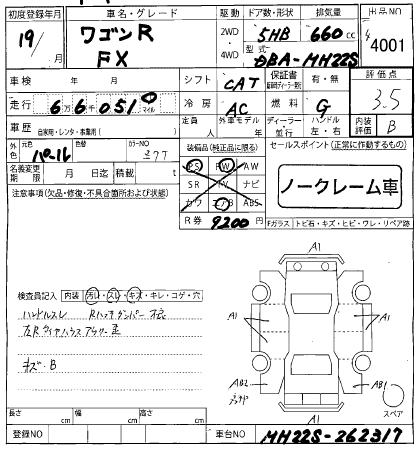 初度登録年月 車名・グレード 駆動 ドア数・形状 排気量 出品NO
19/ 月 ワゴンR 2WD 5HB 660 cc 4001
FX 4WD 型式 DBA-MH22S
車検 年 月 シフト CAT 保証書 有・無 評価点
走行 6万6千0510 マイル 冷房 AC 燃料 G 3.5
車歴 自家用・レンタ・事業用( ) 定員 人 外車モデル 年 ディーラー 並行 ハンドル 左・右 内装評価 B
外色 元色 パール 色替 カラーNO Z7T 装備品(純正品に限る) セールスポイント(正常に作動するもの)
名義変更期限 月 日迄 積載 t PS PW AW
注意事項(欠品・修復・不具合箇所および状態) SR TV ナビ ノークレーム車
カワ エアB ABS
R券 9200円 Fガラス トビ石・キズ・ヒビ・ワレ・リペア跡
A1
検査員記入 内装 汚レ・スレ・キズ・キレ・コゲ・穴
ハンドルスレ Rハッチダンパー
A1 A1
キズ・B
AB2 AB1
スペア
A1
長さ cm 幅 cm 高さ cm
登録NO 車台NO MH22S-262317